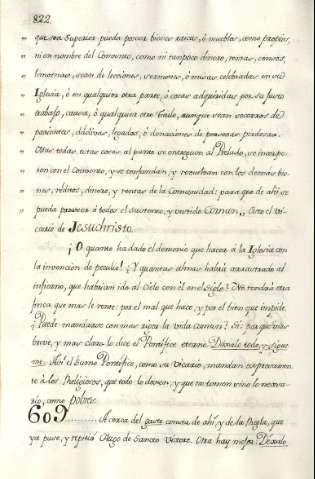 822.
que sea Superior pueda poseer bienes raices, ò muebles, como proprios,
ni en nombre del Convento, como ni tampoco dinero, rentas, censos,
limosnas, sean de lecciones, sermones, ò misas celebradas en su
Iglesia, ò en qualquiera otra parte, ò cosas adquiridas por su justo
trabajo, causa, ò qualquiera otro titulo, aunque sean socorros de
parientes, dadivas, legados, ò donaciones de personas
Otras todas estas cosas al punto se entreguen al Prelado, se incorpo
ren con el Convento, y se confundan, y resuelvan con los demàs bie
nes, reditos, dinero, y rentas de la Comunidad: para que de ahi se
pueda proveer à todos el sustento, y vestido Comun,, Esto el Vi-
cario de Jesuchristo.
¡O quanto ha dado el demonio que hacer à la Iglesia con
la invencion de peculio! ¡Y quantas almas habrà arrastrado al
infierno, que habrian ido al Cielo con èl en el siglo! No tendrà otra
finca que mas le rente: por el mal que hace, y por el bien que impide.
¿Puede mandarse con mas rigor la vida comun? Sì: pues que mas
breve, y mas claro lo dice el Pontifice eterno: Dèxalo todo, y sigue
me. Asi el Sumo Pontifice, como su Vicario, mandan expresamen
te à los Religiosos, que todo lo dexen, y que no tomen sino lo necesa-
rio, como Pobres.
609 ........ Acerca del gasto comun de ahì, y de la Regla, que
ya puse, y repitiò Hugo de Sancto Victore. Otra hay mejor: Dèxalo